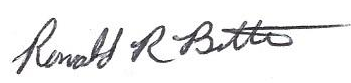 Ronald R Bett